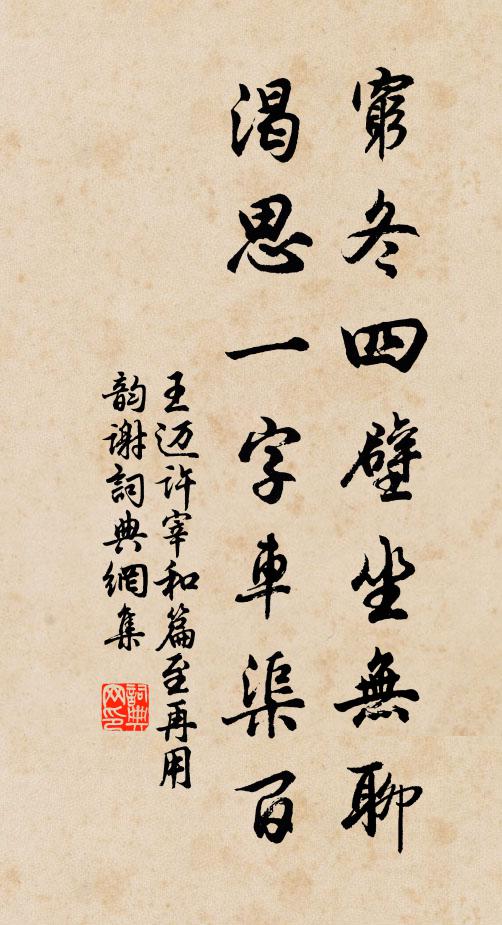 窮冬四壁坐無聊
渴思一字車渠百
王迈許宰和篇至再用
韵謝詞典網集
詞典
网印